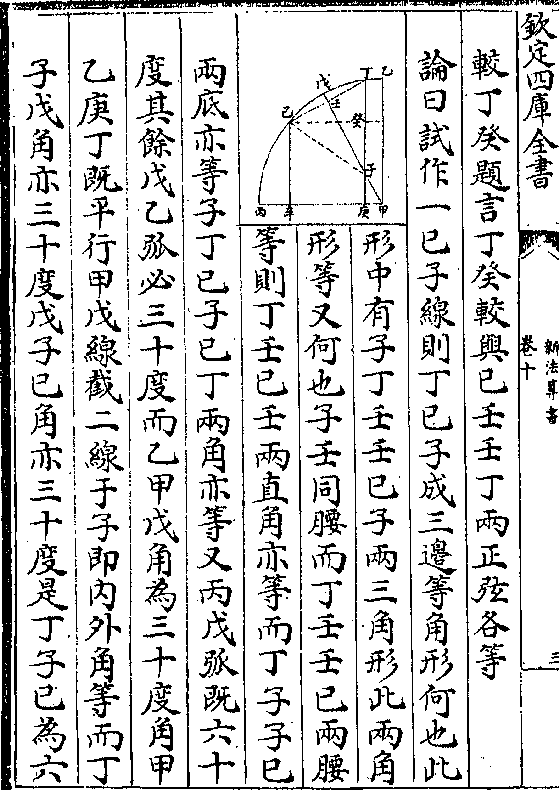 欽定四庫全書
新法算書
卷十
三
較丁癸題言丁癸較與己壬壬丁兩正弦各等
論曰試作一己子線則丁己子成三邊等角形何也此
形中有子丁壬壬己子兩三角形此兩角
形等又何也子壬同腰而丁壬壬己兩腰
等則丁壬己壬兩直角亦等而丁子子己
兩底亦等子丁己子己丁兩角亦等又丙戊弧既六十
度其餘戊乙弧必三十度而乙甲戊角為三十度角甲
乙庚丁既平行甲戊線截二線于子即內外角等而丁
子戊角亦三十度戊子己角亦三十度是丁子己為六
乙
丁
戊
壬
己
癸
子
甲
庚
辛
丙